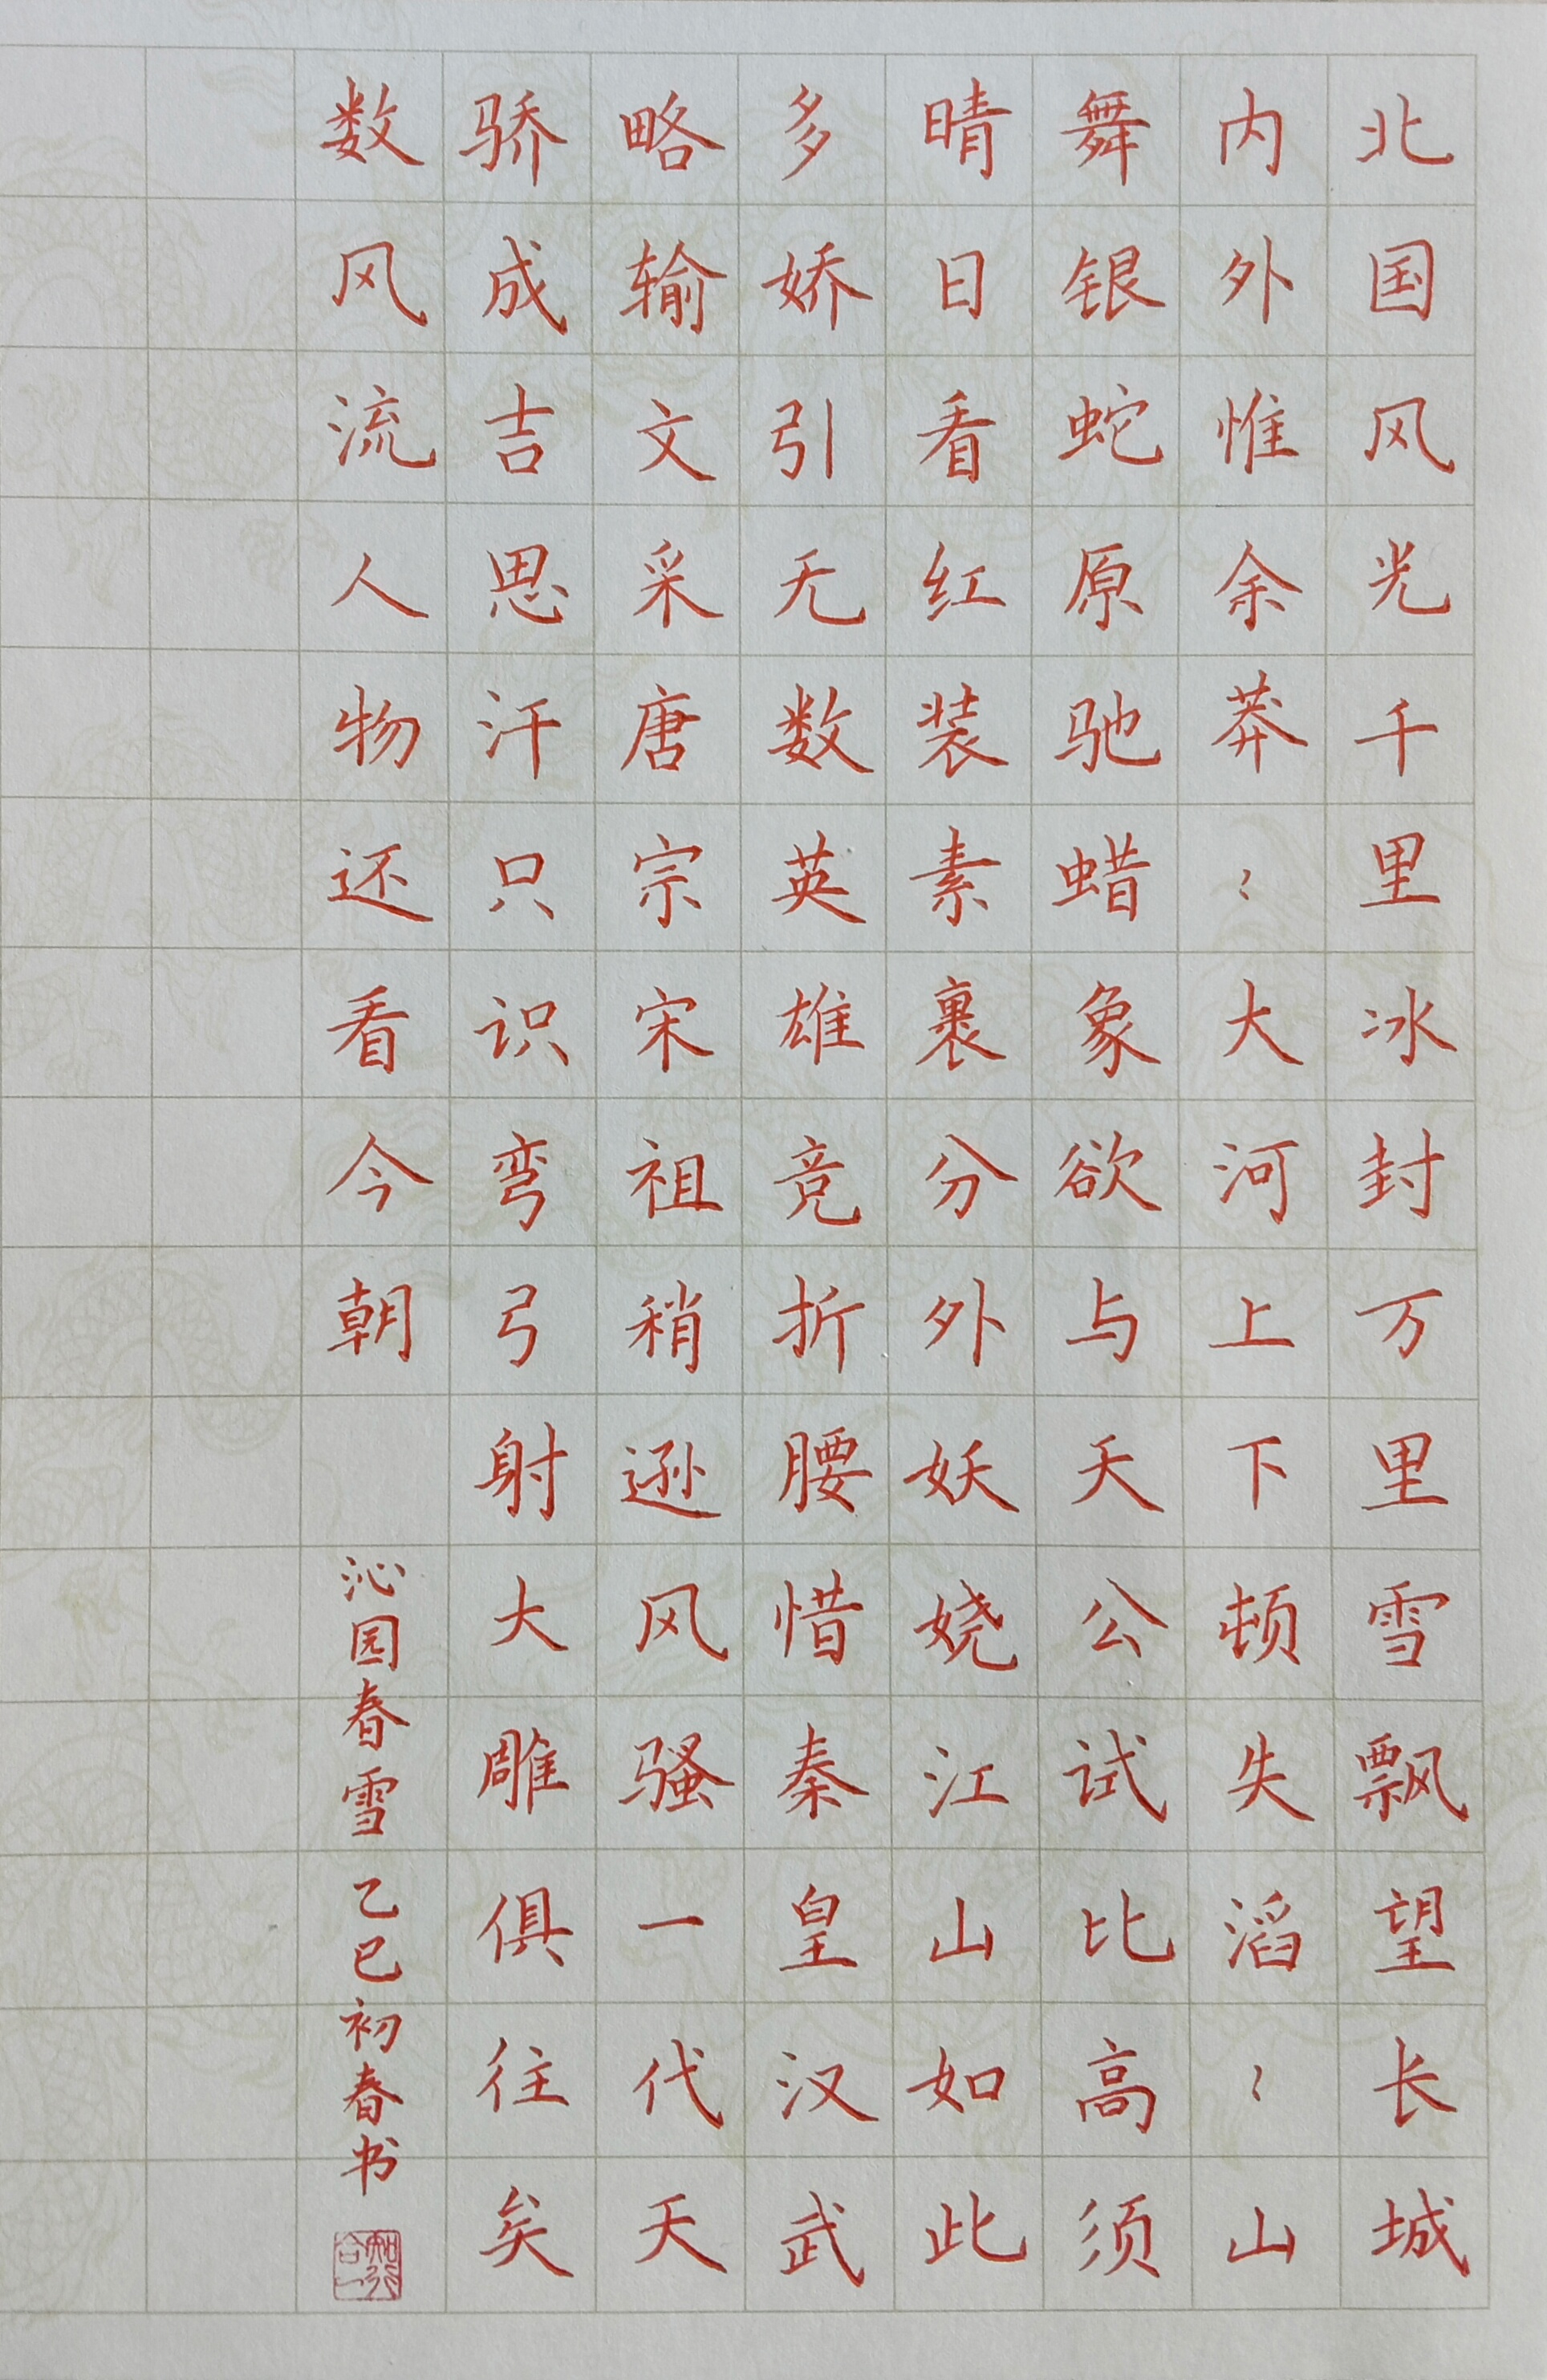 北国风光千里冰封万里雪飘望长城
内外惟余莽〻大河上下顿失滔〻山
舞银蛇原驰蜡象欲与天公试比高须
晴日看红装素裹分外妖娆江山如此
多娇引无数英雄竞折腰惜秦皇汉武
略输文采唐宗宋祖稍逊风骚一代天
骄成吉思汗只识弯弓射大雕俱往矣
数风流人物还看今朝
沁园春雪 乙巳初春书
知行合一